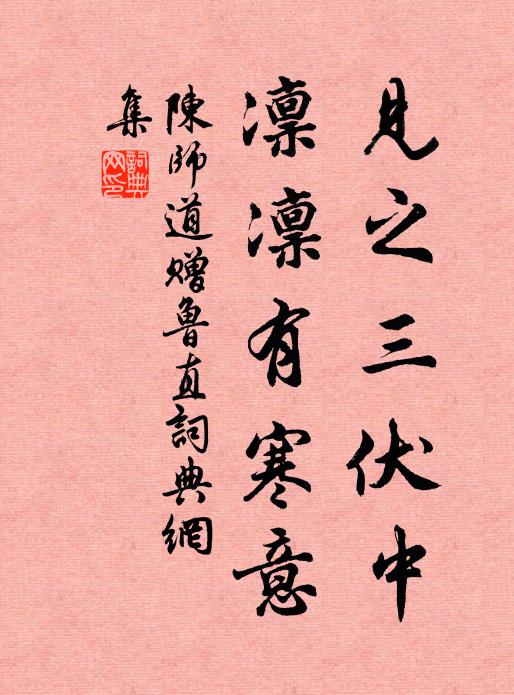 見之三伏中
凛凛有寒意
陳師道贈魯直詞典網
集
詞典
网印